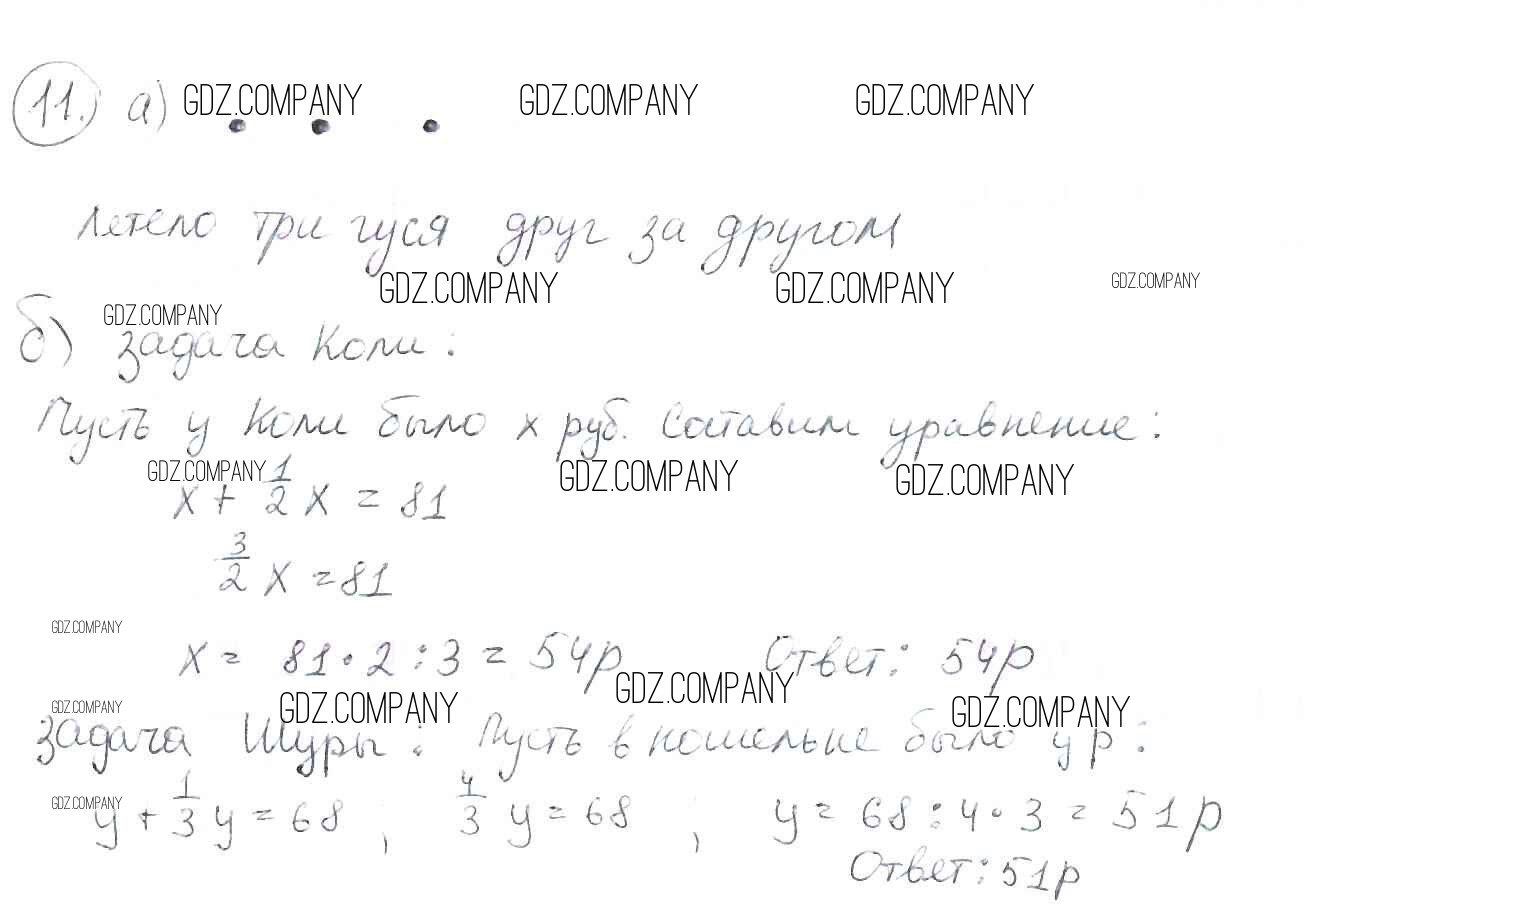 11. а) GDZ.COMPANY GDZ.COMPANY GDZ.COMPANY
Летело три гуся друг за другом
GDZ.COMPANY GDZ.COMPANY GDZ.COMPANY
GDZ.COMPANY
б) задача Коли:
Пусть у Коли было x руб. Составим уравнение:
GDZ.COMPANY GDZ.COMPANY GDZ.COMPANY
x + 1/2 x = 81
3/2 x = 81
GDZ.COMPANY
x = 81 · 2 : 3 = 54р Ответ: 54р
GDZ.COMPANY GDZ.COMPANY GDZ.COMPANY GDZ.COMPANY
задача Шуры: Пусть в кошельке было y р:
GDZ.COMPANY
y + 1/3 y = 68 , 4/3 y = 68 , y = 68 : 4 · 3 = 51р
Ответ: 51р